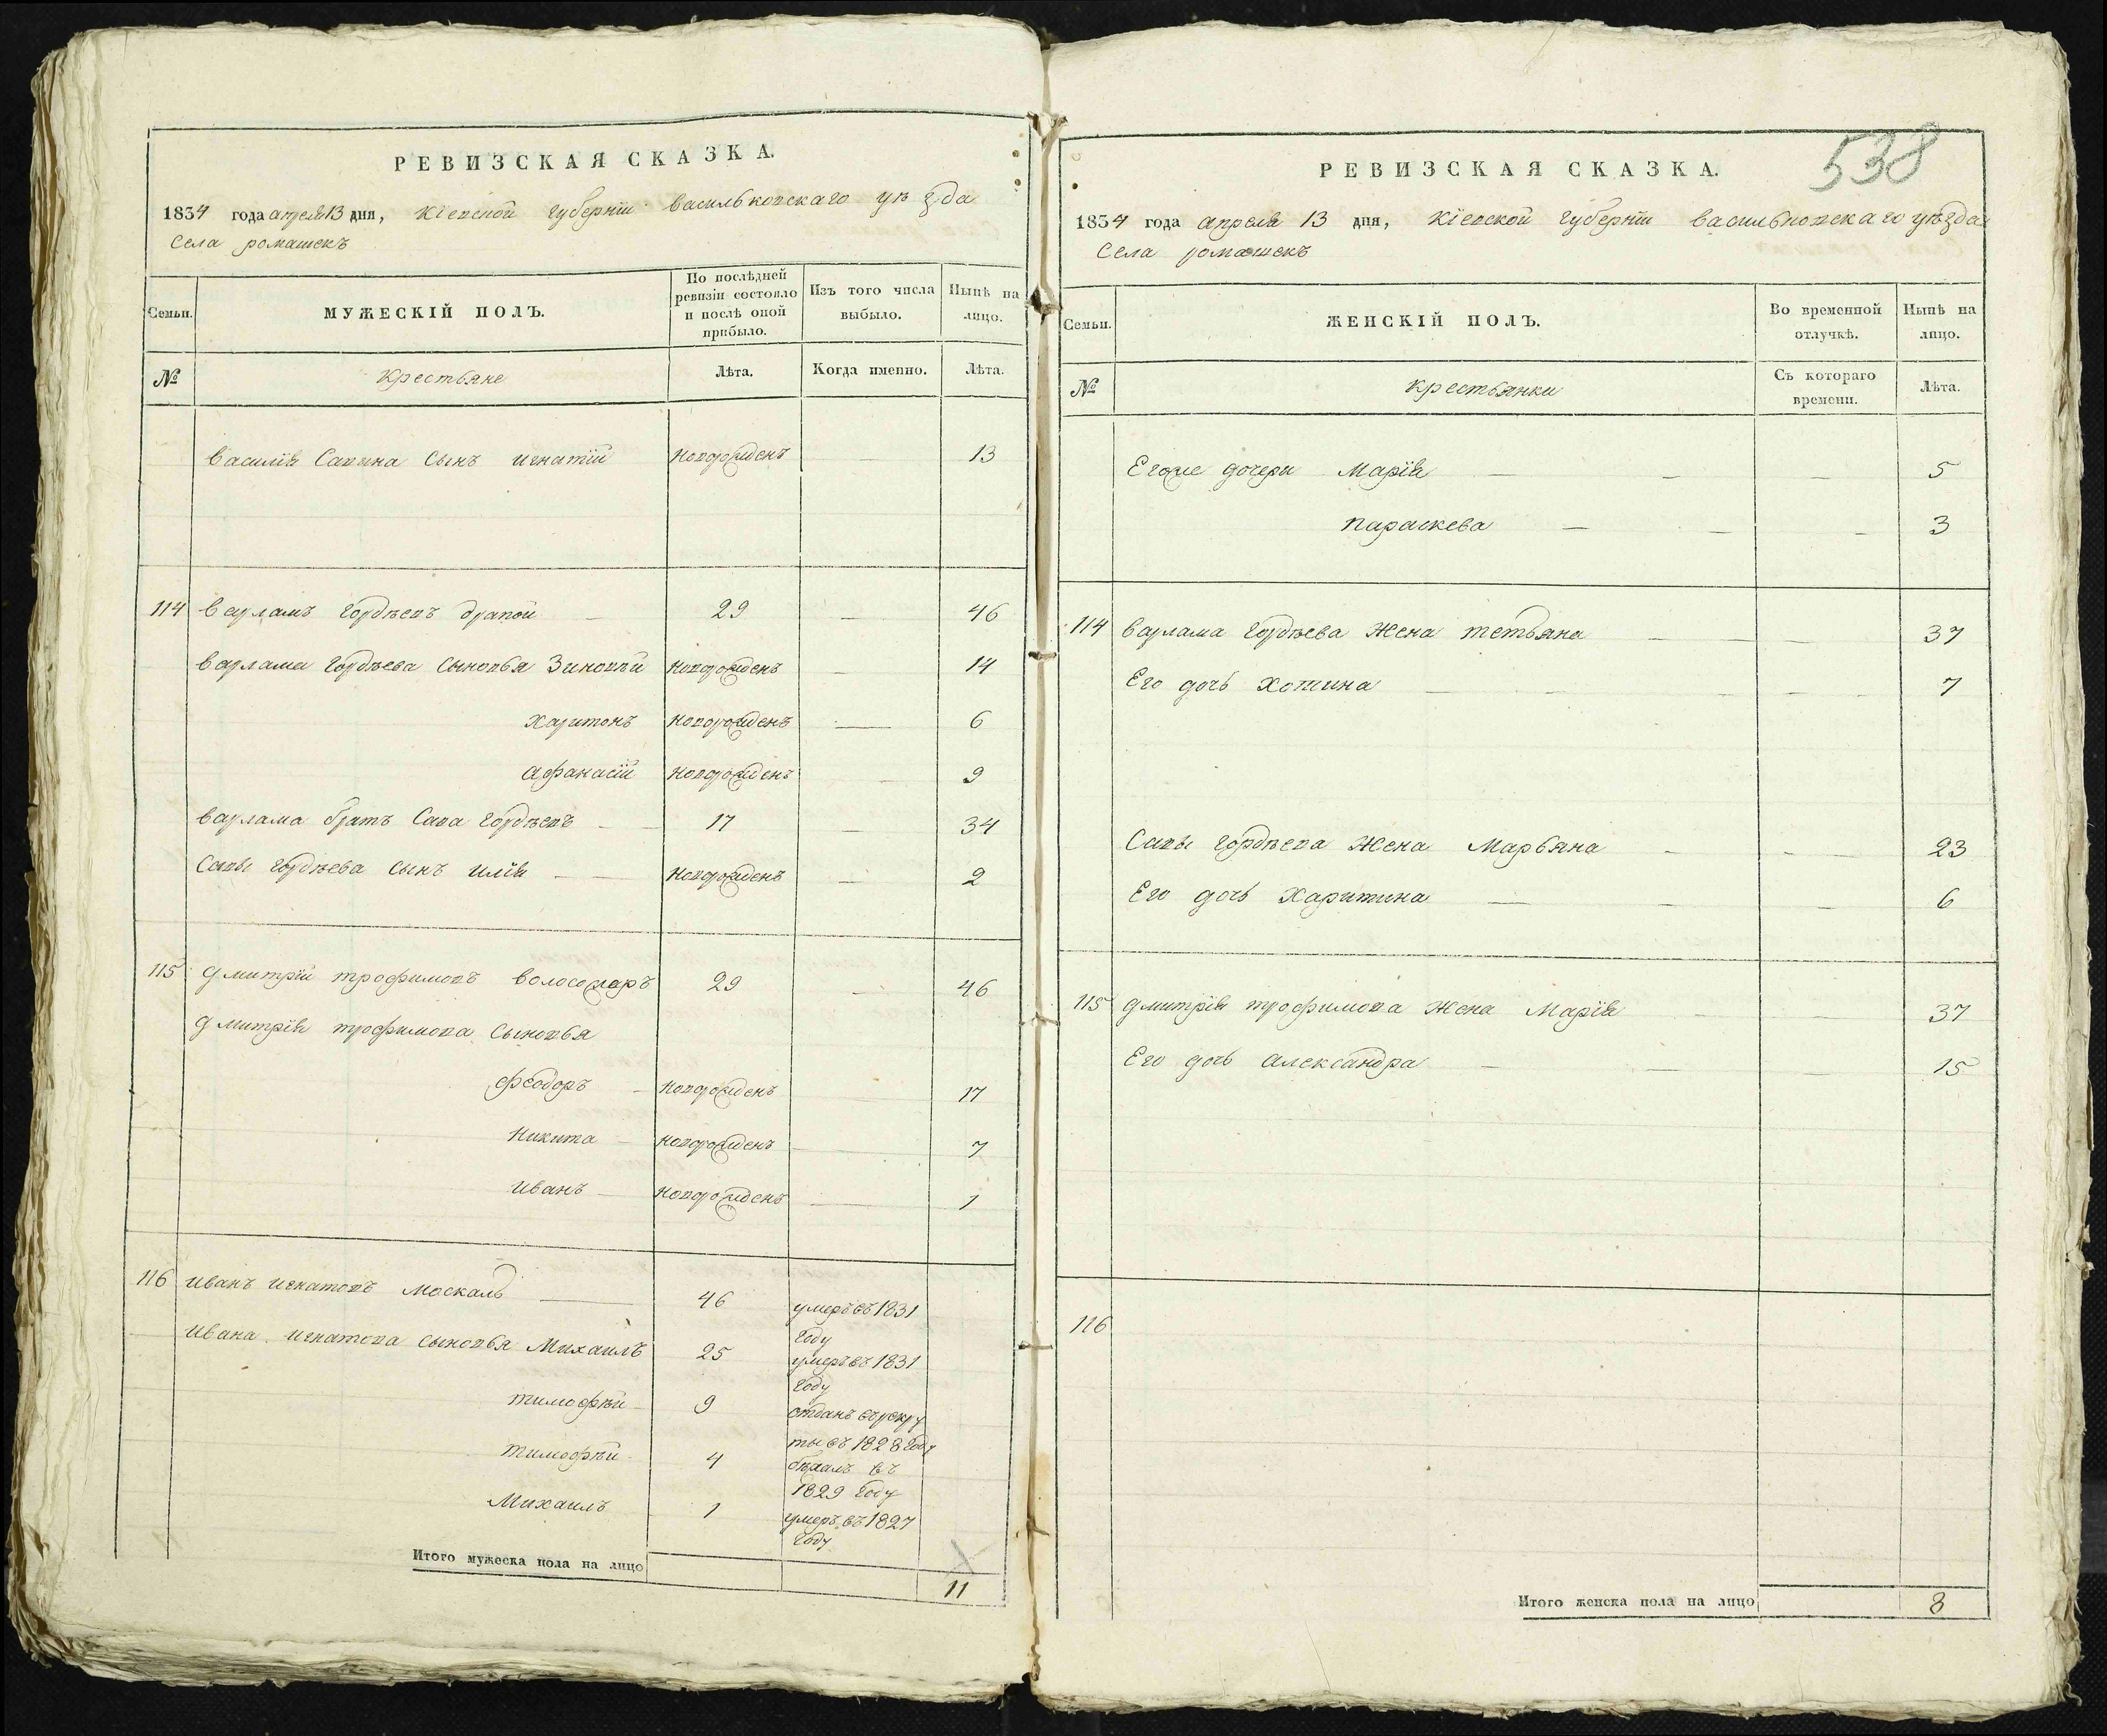 РЕВИЗСКАЯ СКАЗКА.
1834 года апреля 13 дня, Кіевской губерніи васильковскаго уѣзда
Села ромашекъ
Семьи. МУЖЕСКІЙ ПОЛЪ. По послѣдней ревизіи состояло и послѣ оной прибыло. Изъ того числа выбыло. Нынѣ на лицо.
№ Крестьяне Лѣта. Когда именно. Лѣта.
василія Савина Сынъ игнатій новорожденъ — 13
114 варламъ гордѣевъ драпой — 29 — 46
варлама гордѣева сыновья Зиновѣй новорожденъ — 14
харитонъ новорожденъ — 6
афанасій новорожденъ — 9
варлама братъ Сава гордѣевъ — 17 — 34
Савы гордѣева сынъ илія — новорожденъ — 2
115 дмитрій трофимовъ волосожаръ 29 — 46
дмитрія трофимова сыновья
феодоръ — новорожденъ — 17
Никита — новорожденъ — 7
иванъ — новорожденъ — 1
116 иванъ игнатовъ москаль — 46 умеръ въ 1831
году
ивана игнатова сыновья Михаилъ 25 умеръ въ 1831
году
тимофѣй — 9 отданъ въ рекру
ты въ 1828 году
тимофѣй — 4 бѣжалъ въ
1829 году
Михаилъ 1 умеръ въ 1827
году
Итого мужеска пола на лицо 11
538
РЕВИЗСКАЯ СКАЗКА.
1834 года апреля 13 дня, Кіевской губерніи васильковскаго уѣзда
Села ромашекъ
Семьи. ЖЕНСКІЙ ПОЛЪ. Во временной отлучкѣ. Нынѣ на лицо.
№ крестьянки Съ котораго времени. Лѣта.
Егоже дочери Марія — — — 5
параскева — — — 3
114 варлама гордѣева жена тетьяна — — — 37
Его дочь хотина — — — — 7
Савы гордѣева жена Марьяна — — — 23
Его дочь Харитина — — — 6
115 дмитрія трофимова жена Марія — — — 37
Его дочь александра — — — 15
116
Итого женска пола на лицо 8